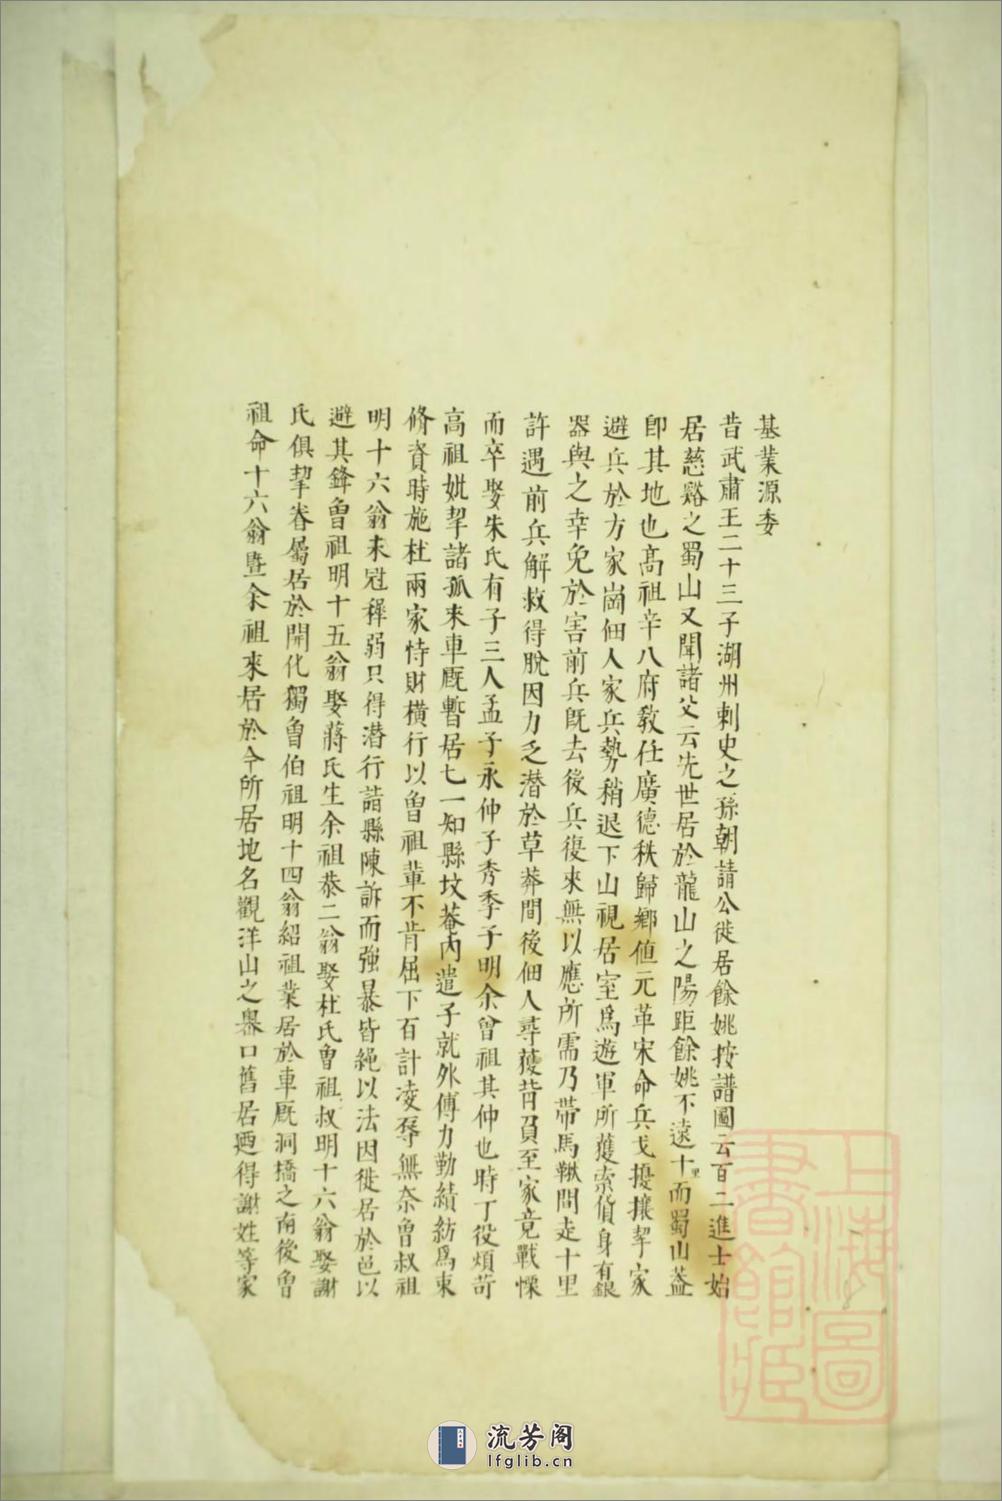 基業源委
昔武肅王二十三子湖州刺史之孫朝請公徙居餘姚按譜圖云百二進士始
居慈谿之蜀山又聞諸父云先世居於龍山之陽距餘姚不遠十里而蜀山葢
卽其地也高祖辛八府教任廣德秩歸鄉值元革宋命兵戈擾攘挈家
避兵於方家崗佃人家兵勢稍退下山視居室爲遊軍所獲索貨身有銀
器與之幸免於害前兵旣去後兵復來無以應所需乃帶馬鞦間走十里
許遇前兵解救得脫因力乏潛於草莽間後佃人尋獲背負至家竟戰慄
而卒娶朱氏有子三人孟子永仲子秀季子明余曾祖其仲也時丁役煩苛
高祖妣挈諸孤來車厩暫居七一知縣坟菴內遣子就外傅力勤績紡爲束
脩資時施杜兩家恃財橫行以曾祖輩不肯屈下百計凌辱無奈曾叔祖
明十六翁未冠穉弱只得潛行詣縣陳訴而強暴皆繩以法因徙居於邑以
避其鋒曾祖明十五翁娶蔣氏生余祖恭二翁娶杜氏曾祖叔明十六翁娶謝
氏俱挈眷屬居於開化獨曾伯祖明十四翁紹祖業居於車厩洞橋之南後曾
祖命十六翁暨余祖來居於今所居地名觀洋山之嶴口舊居廼得謝姓等家
上海圖
書館藏
流芳阁
lfglib.cn